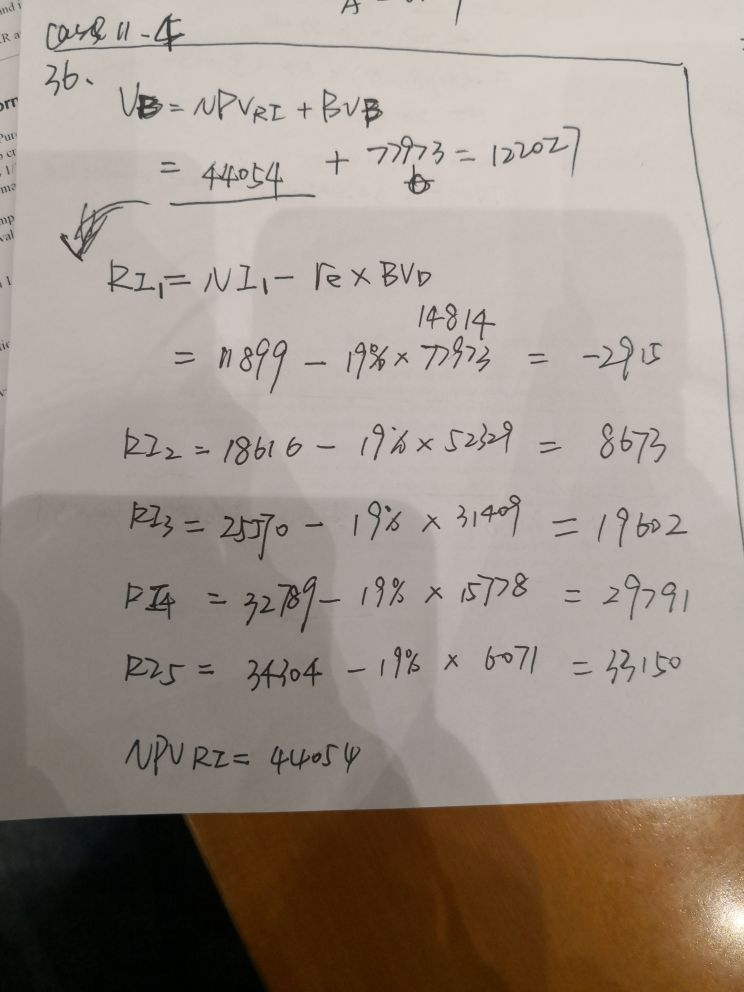 Case 11-4
36.
VB = NPV RI + BVB
= 44054 + 77973 = 122027
RI1 = NI1 - re × BV0
14814
= 11899 - 19% × 77973 = -2915
RI2 = 18616 - 19% × 52329 = 8673
RI3 = 25570 - 19% × 31409 = 19602
RI4 = 32789 - 19% × 15778 = 29791
RI5 = 34304 - 19% × 6071 = 33150
NPV RI = 44054